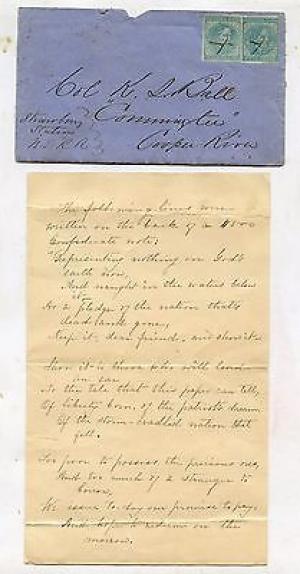 Col K. S. Ball
"Comingtee"
Cooper River
Strawberry
Station
N. E. R. R.
The following lines were
written on the back of a $500
Confederate note:
"Representing nothing on God's
earth now,
And naught in the waters below
it
As a pledge of the nation that's
dead and gone,
Keep it, dear friend, and show it.
Show it to those who will lend
an ear
To the tale that this paper can tell,
Of liberty born, of the patriot's dream
Of the storm-cradled nation that
fell.
Too poor to possess the precious ores,
And too much of a stranger to
borrow,
We issue to-day our promise to pay
And hope to redeem on the
morrow.